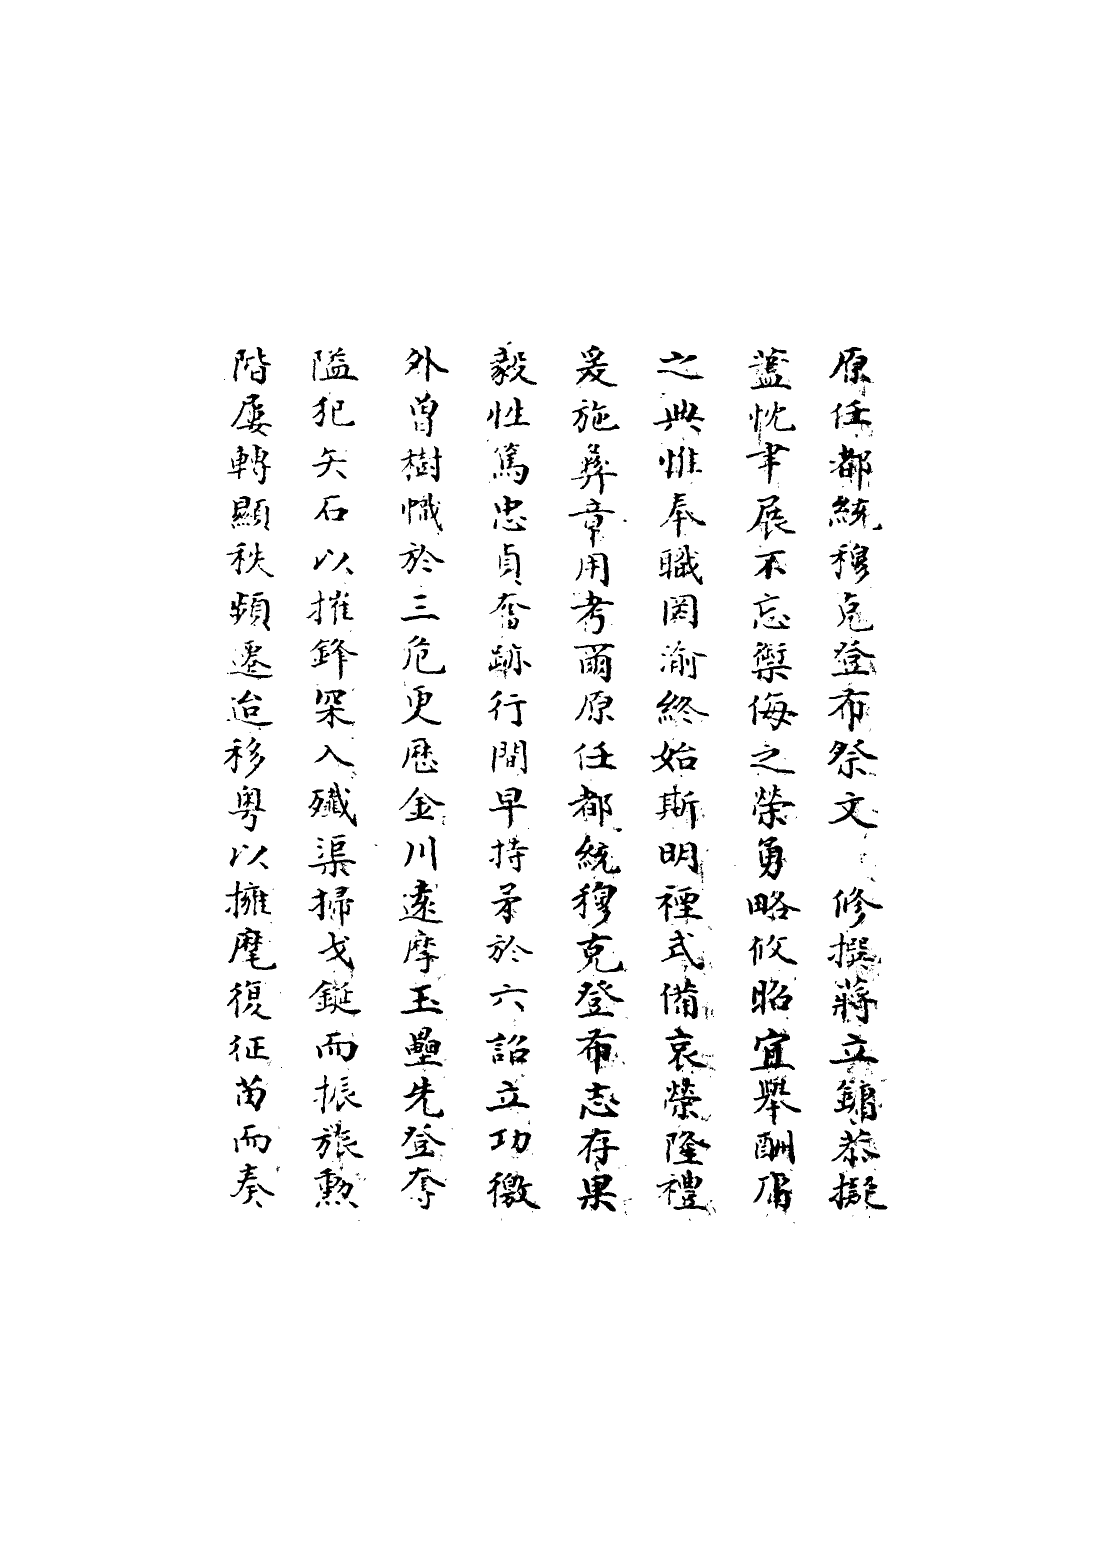 原任都統穆克登布祭文　修撰蔣立鏞恭擬
藎忱聿展不忘禦侮之榮勇略攸昭宜舉酬庸
之典惟奉職罔渝終始斯明禋式備哀榮隆禮
爰施彝章用考爾原任都統穆克登布志存果
毅性篤忠貞奮跡行間早持矛於六詔立功徼
外曾樹幟於三危更歷金川遠摩玉壘先登奪
隘犯矢石以摧鋒罙入殲渠掃戈鋋而振旅勳
階屢轉顯秩頻遷迨移粵以擁麾復征苗而奏